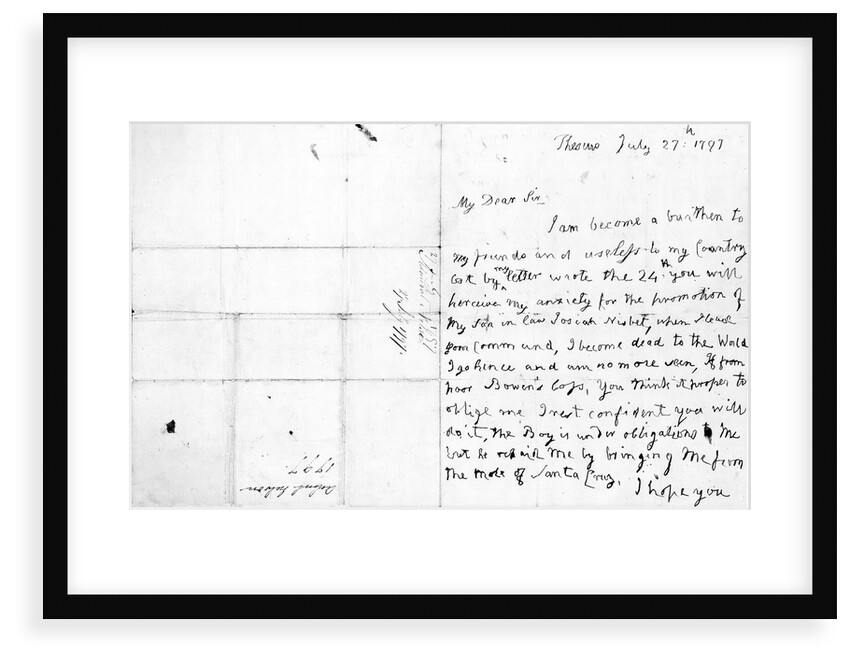 Theseus July 27th: 1797
My Dear Sir
I am become a burthen to
My friends and useless to my Country
but by my letter wrote the 24th. you will
perceive my anxiety for the promotion of
My Son in law Josiah Nisbet, when I leave
your Command, I become dead to the World
I go hence and am no more seen, If from
poor Bowen's loss, You think it proper to
oblige me I rest confident you will
do it, the Boy is under obligations to Me
but he repaid Me by bringing Me from
the Mole of Santa Cruz.
I hope you
27 July
July 1797.
1797